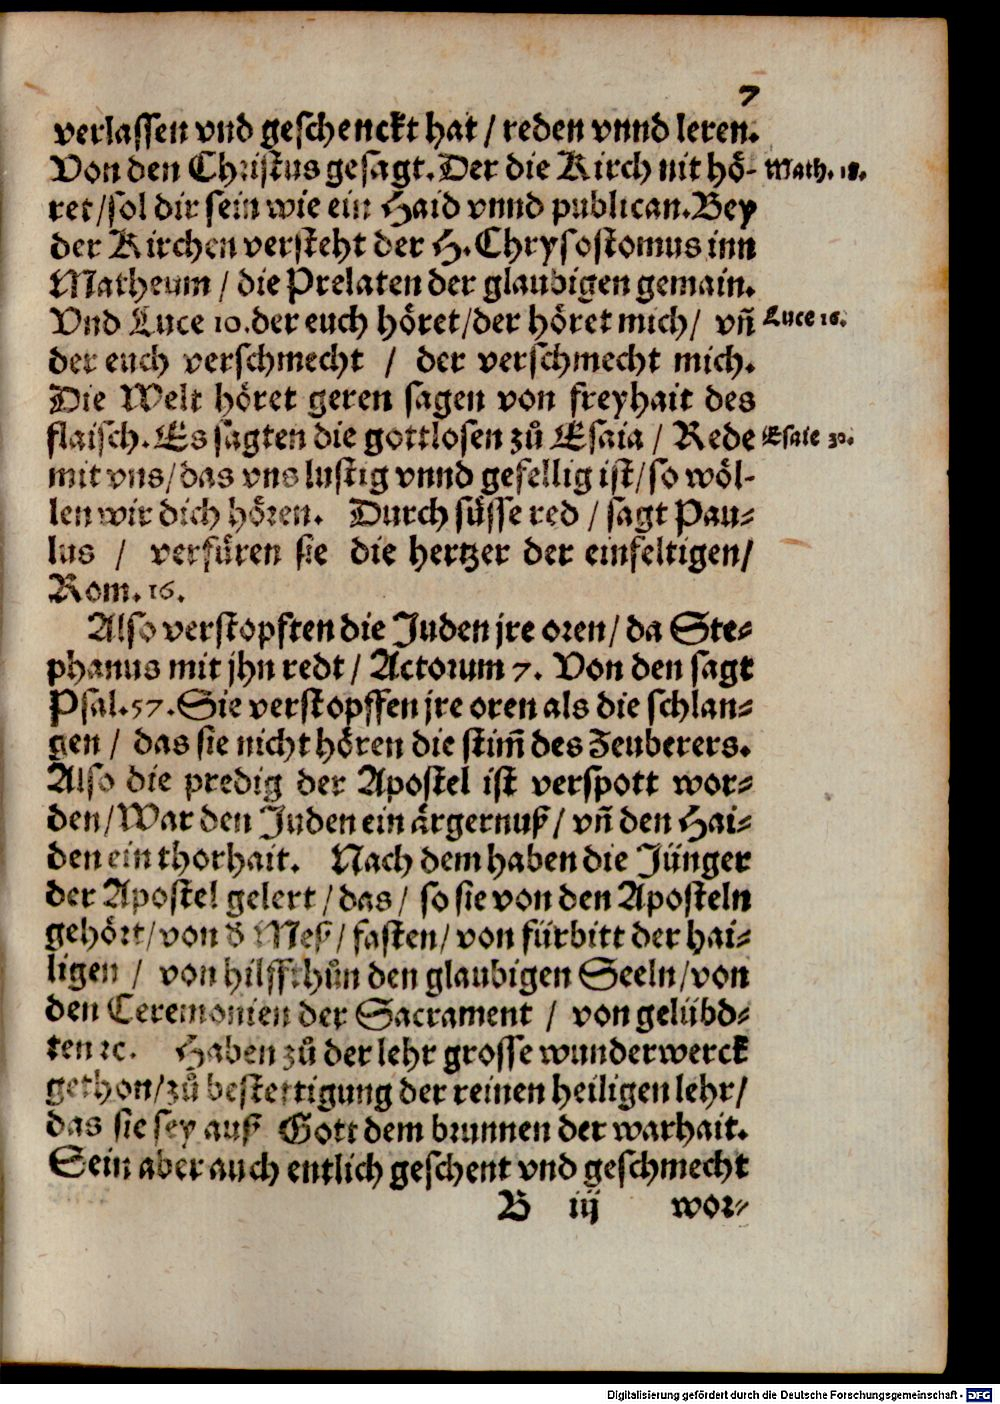 7
verlassen vnd geschenckt hat / reden vnnd leren.
Von den Christus gesagt. Der die Kirch nit hö- Math. 18.
ret/sol dir sein wie ein Haid vnnd publican. Bey
der Kirchen versteht der H. Chrysostomus inn
Matheum / die Prelaten der glaubigen gemain.
Vnd Luce 10. der euch höret/der höret mich/ vñ Luce 10.
der euch verschmecht / der verschmecht mich.
Die Welt höret geren sagen von freyhait des
flaisch. Es sagten die gottlosen zů Esaia / Rede Esaie 30.
mit vns/das vns lustig vnnd gefellig ist/so wöl-
len wir dich hören. Durch süsse red / sagt Pau-
lus / verfüren sie die hertzer der einfeltigen/
Rom. 16.
Also verstopften die Juden jre oren/da Ste-
phanus mit jhn redt / Actorum 7. Von den sagt
Psal. 57. Sie verstopffen jre oren als die schlan-
gen / das sie nicht hören die stim̃ des Zeuberers.
Also die predig der Apostel ist verspott wor-
den/War den Juden ein ärgernuß/ vñ den Hai-
den ein thorhait. Nach dem haben die Jünger
der Apostel gelert / das / so sie von den Aposteln
gehört/von d̕ Meß/ fasten/ von fürbitt der hai-
ligen / von hilffthůn den glaubigen Seeln/von
den Ceremonien der Sacrament / von gelübd-
ten ꝛc. Haben zů der lehr grosse wunderwerck
gethon/zů bestettigung der reinen heiligen lehr/
das sie sey auß Gott dem brunnen der warhait.
Sein aber auch entlich geschent vnd geschmecht
B iij wor-
Digitalisierung gefördert durch die Deutsche Forschungsgemeinschaft - DFG